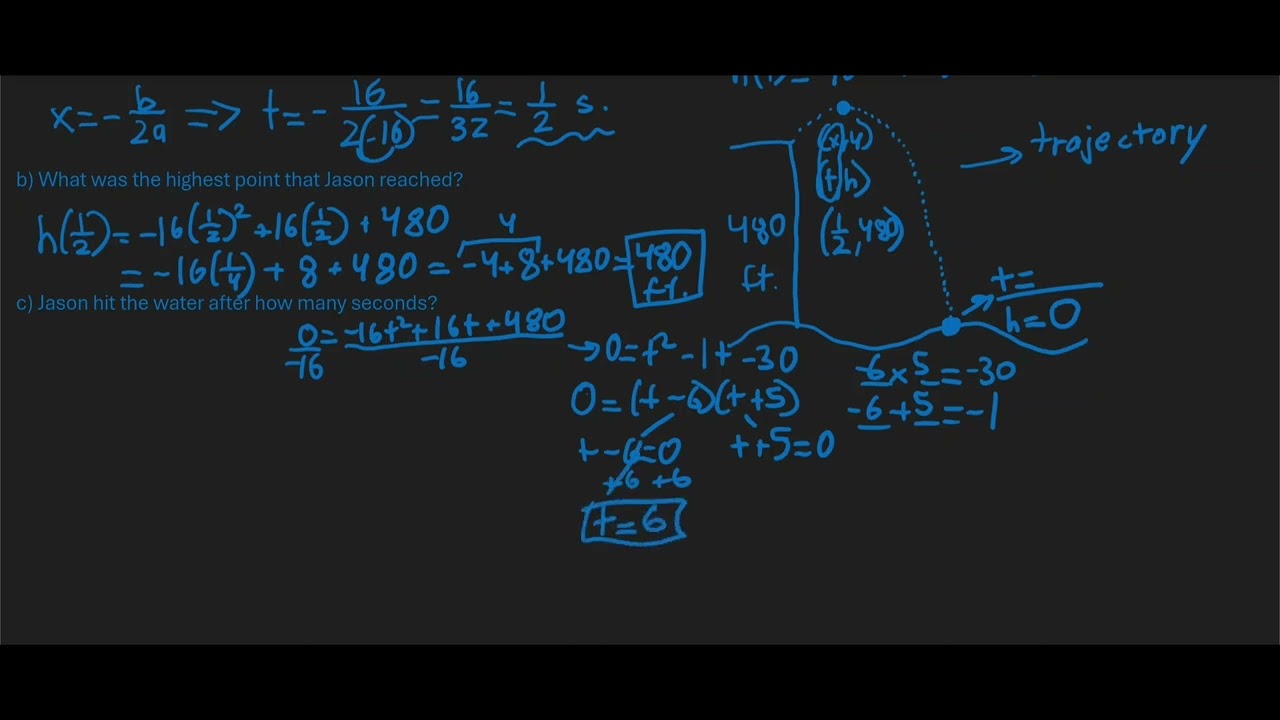 x = -b/2a => t = -16/2(-16) = 16/32 = 1/2 s.
b) What was the highest point that Jason reached?
h(1/2) = -16(1/2)² + 16(1/2) + 480
= -16(1/4) + 8 + 480 = -4+8+480 = 480 ft.
4
c) Jason hit the water after how many seconds?
0/-16 = -16t²+16t+480/-16
→ 0 = t² - 1t - 30
0 = (t - 6)(t + 5)
t - 6 = 0
+6 +6
t = 6
t + 5 = 0
-6 x 5 = -30
-6 + 5 = -1
(x, y)
(t, h)
(1/2, 480)
480 ft.
→ trajectory
t =
h = 0